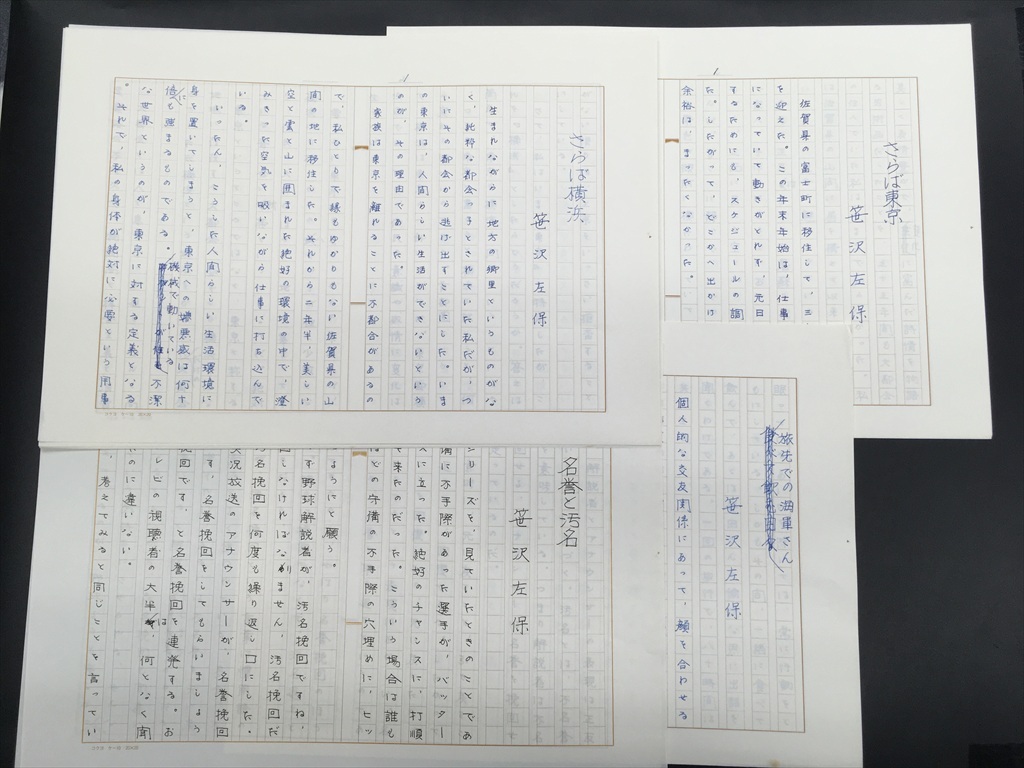 さらば横浜
笹沢左保
生まれながらに地方の郷里というものがな
く、純粋な都会っ子とされていた私だが、つ
いにその都会から逃げ出すことにした。いま
の東京は、人間らしい生活ができないという
のが、その理由であった。
家族は東京を離れることに不都合があるの
で、私ひとりで縁もゆかりもない佐賀県の山
間の地に移住した。それから二年半、美しい
空と雲と山に囲まれた絶好の環境の中で、澄
みきった空気を吸いながら仕事に打ち込んで
いる。
いったん、こうした人間らしい生活環境に
身を置いてしまうと、東京への憎悪感は何十
倍にも強まるものである。機械で動いている不潔
な世界というのが、東京に対する定義となる
。それで、私の身体が絶対に必要という用事
さらば東京
笹沢左保
佐賀県の富士町に移住して、三
を迎えた。この年末年始は、仕事
になっていて動きがとれず、元日
するためにも、スケジュールの調
た。したがって、どこかへ出かけ
余裕は、まったくなかった。
名誉と汚名
笹沢左保
シリーズを、見ていたときのことであ
備に不手際があった選手が、バッター
スに立った。絶好のチャンスに、打順
て来たのだった。こういう場合は誰も
ほどの守備の不手際の穴埋めに、ヒッ
ようにと願う。
ず野球解説者が、汚名挽回ですね、
回しなければなりません、汚名挽回だ
名挽回を何度も繰り返し口にした。
実況放送のアナウンサーが、名誉挽回
す、名誉挽回をしてもらいましょう
挽回です、と名誉挽回を連発する。お
レビの視聴者の大半は、何となく聞
のに違いない。
、考えてみると同じことを言ってい
旅先での海軍さん
笹沢左保
個人的な交友関係にあって、顔を合わせる